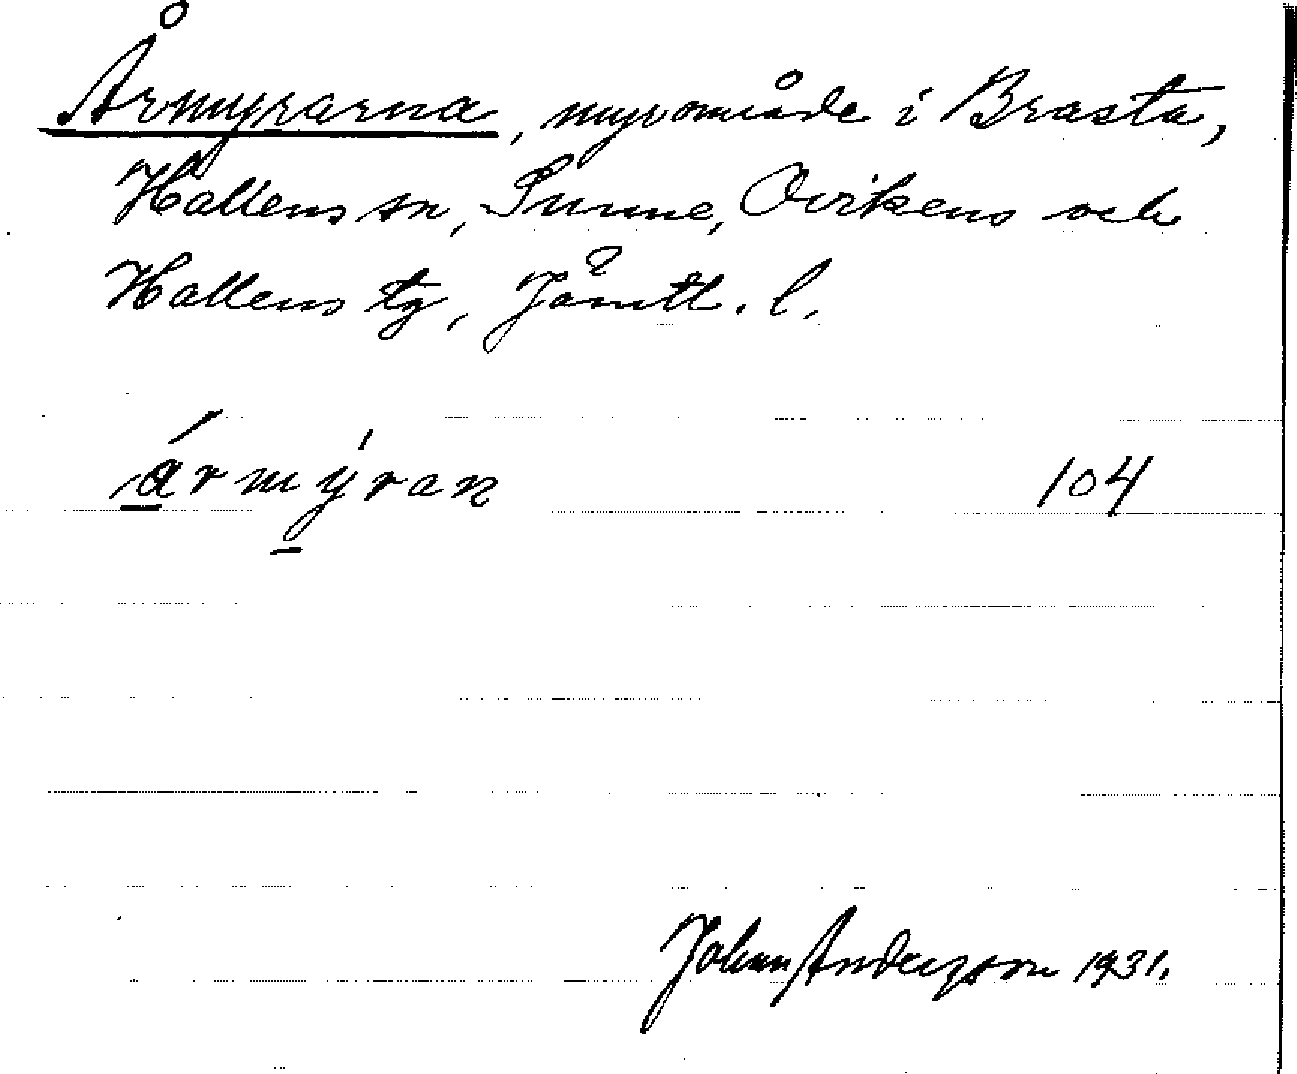 Årmyrarna, myrområde i Brasta,
Hallens sn, Sunne, Ovikens och
Hallens tg, Jämtl. l.
ármýran 104
Johan Andersson 1931.